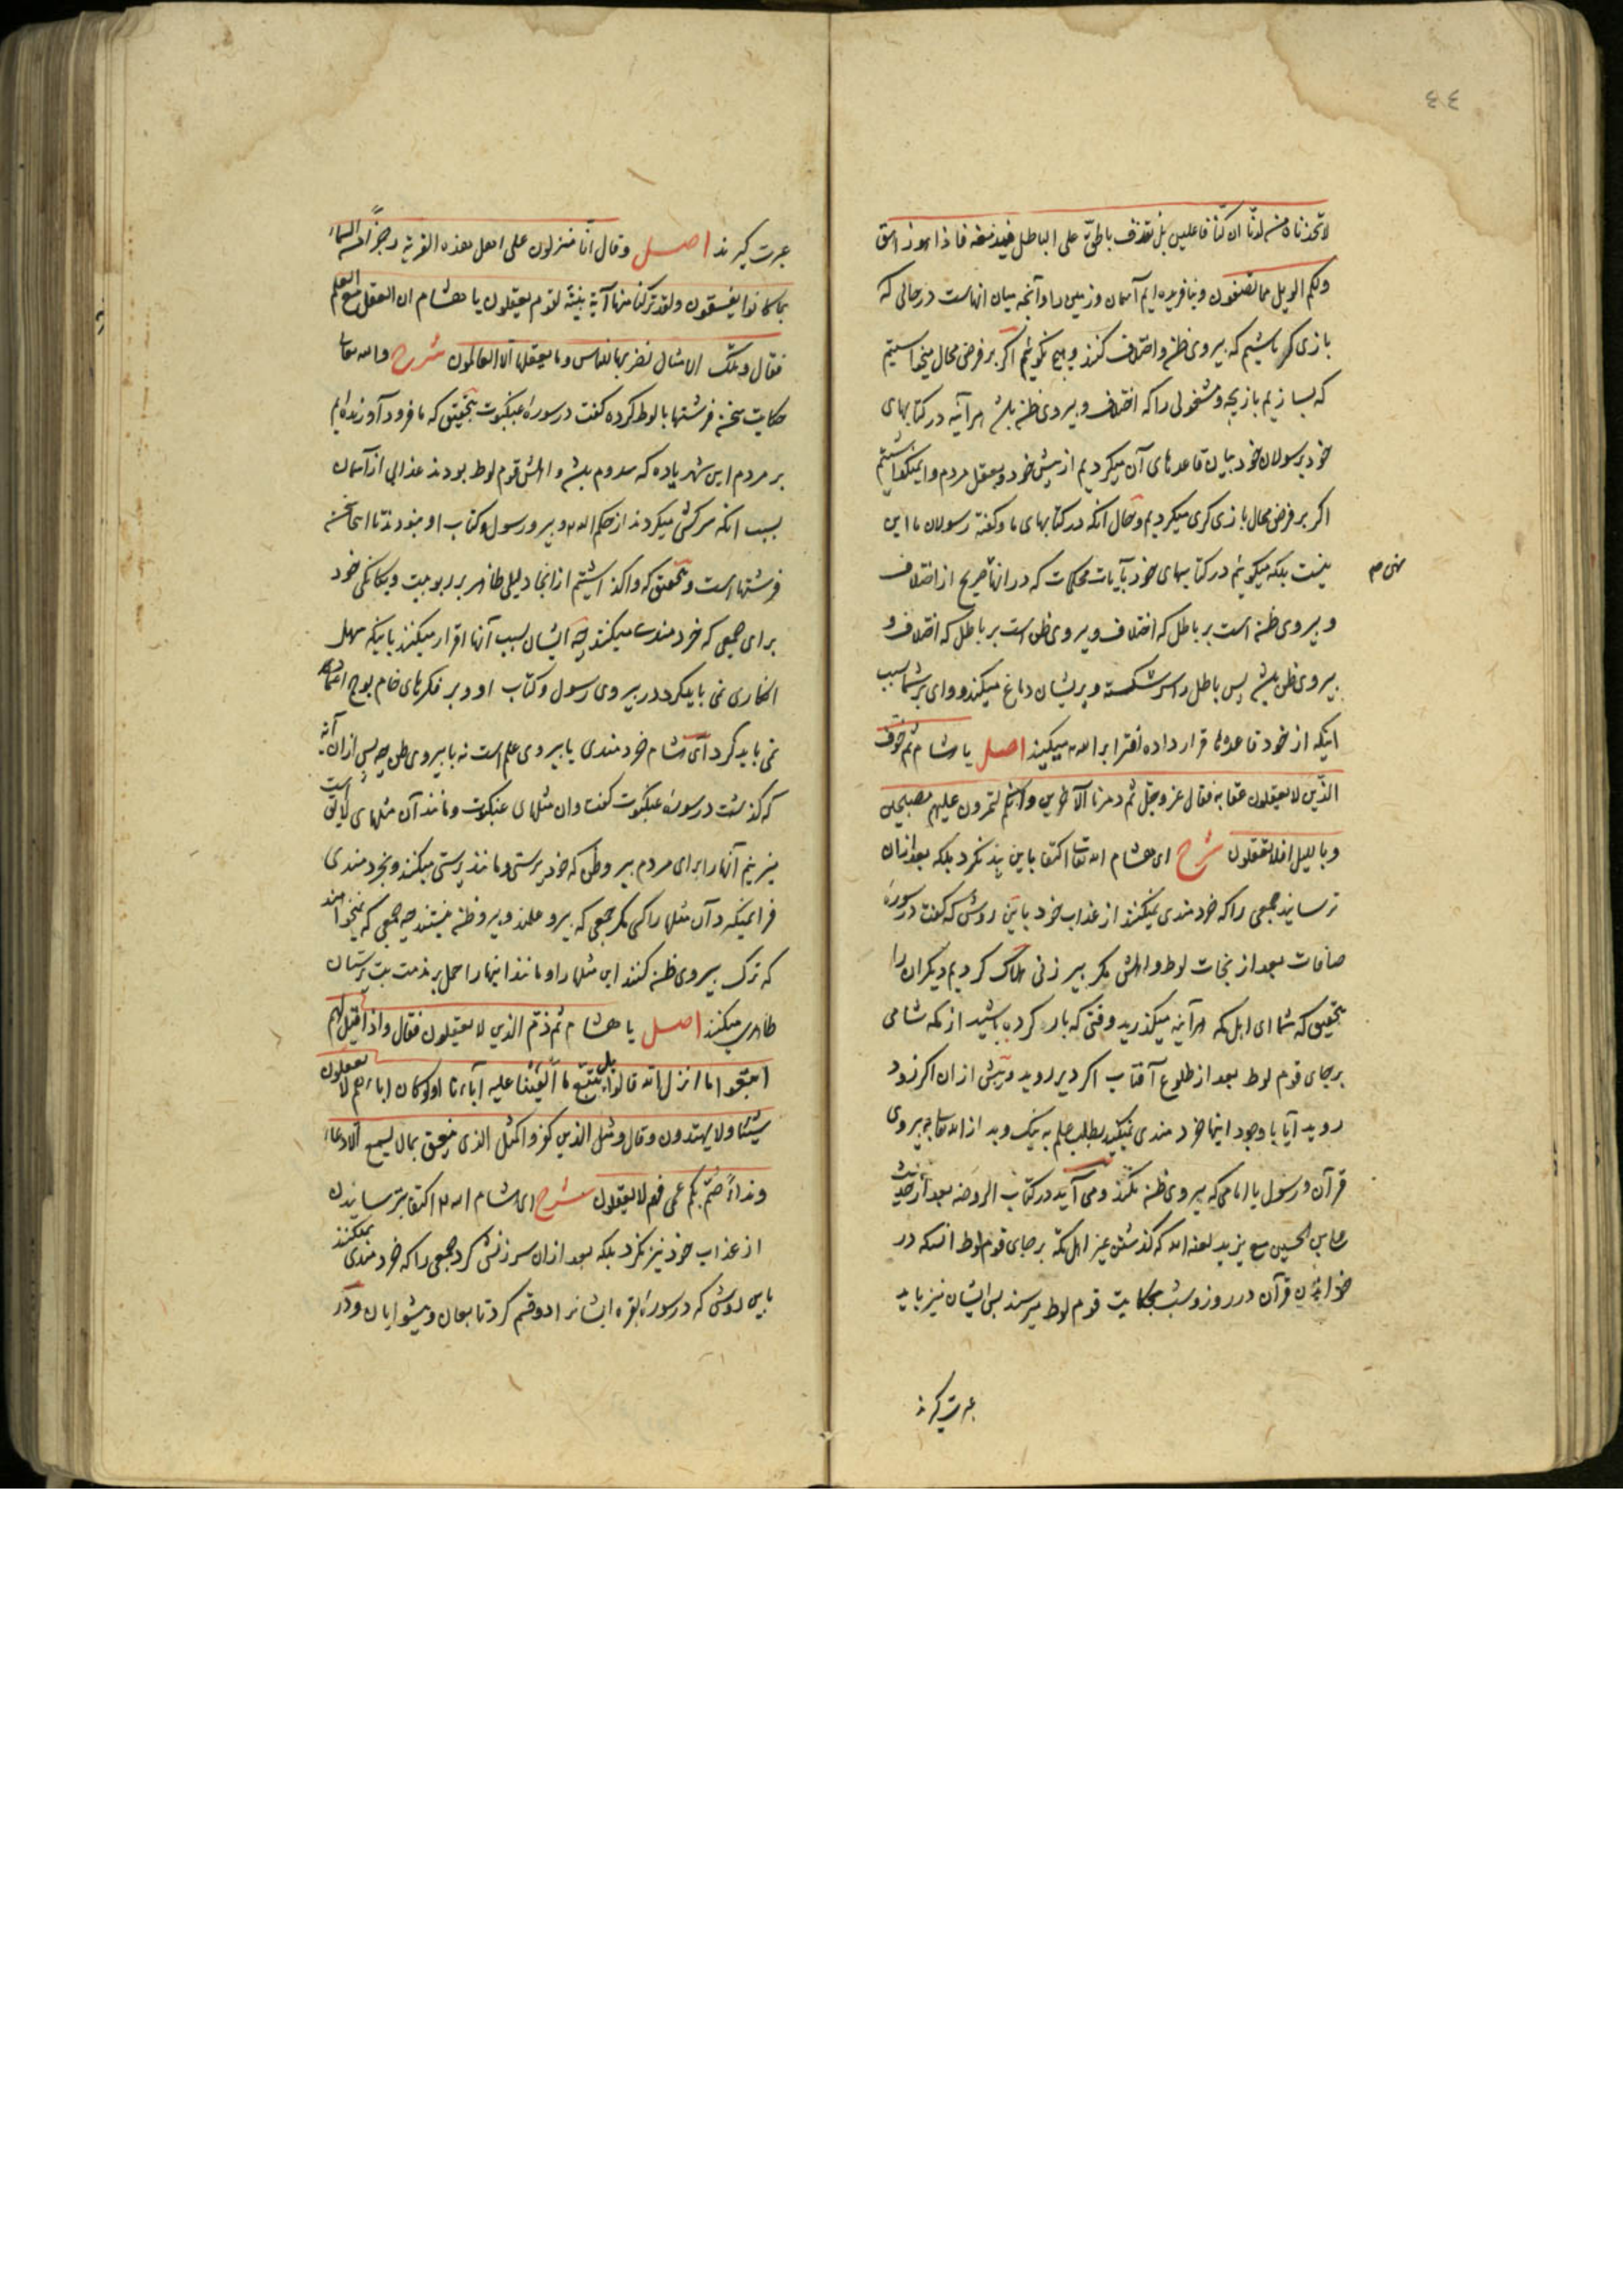 ٤٤
لاتخذناه من لدنا ان كنا فاعلين بل نقذف بالحق على الباطل فيدمغه فاذا هو زاهق
ولكم الويل مما تصفون ونیافریده ایم آسمان وزمین را و آنچه میان انهاست در حالی که
بازی کر باشیم که پیروی ظن و اختلاف کنند و هیچ نکوئیم اکر بر فرض محال میخواستیم
که بسازیم بازیچه و مشغولی را که اختلاف و پیروی ظن باشد هر آینه در کتابهای
خود برسولان خود بیان قاعده های آن میکردیم از پیش خود و بعقل مردم وا نمیکذاشتیم
اکر بر فرض محال بازی کری میکردیم و حال آنکه در کتابهای ما و کفته رسولان ما این
نیست بلکه میکوئیم در کتابهای خود بآیات محکمات که در انها تصریح از اختلاف
و پیروی ظن است بر باطل که اختلاف و پیروی ظن است بر باطل که اختلاف و
پیروی ظن باشد پس باطل را سر شکسته و پریشان دماغ میکند و وای بر شما بسبب
اینکه از خود قاعده قرار داده افترا بر الله میکنید اصل یا هشام ثم خوّف
الذین لا یعقلون عقابه فقال عز وجل ثم دمرنا الآخرین وانکم لتمرون علیهم مصبحین
وباللیل افلا تعقلون شرح ای هشام الله تعالی اکتفا باین نیز نکرد بلکه بعد از ان
ترسانید جمعی را که خردمندی نمیکنند از عذاب خود باین روش که کفت در سورهٔ
صافات بعد از نجات لوط و اهلش مکر پیر زنی هلاک کردیم دیکران را
بتحقیق که شما ای اهل مکه هر آینه میکذرید وقتی که بار کرده باشید از مکه شامی
بر جای قوم لوط بعد از طلوع آفتاب اکر دیر روید و پیش از ان اکر زود
روید آیا با وجود اینها خردمندی نمیکنید بطلب علم به نیک و بد از الله تعالی به پیروی
قرآن و رسول یا امامی که پیروی ظن نکند و می آید در کتاب الروضه بعد از حدیث
علی بن الحسین مع یزید لعنه الله که کذشتن غیر اهل مکه بر جای قوم لوط انست که در
خواندن قرآن در روز و شب بحکایت قوم لوط میرسند پس ایشان نیز باید
عبرت کیرند
عبرت کیرند اصل وقال انا منزلون على اهل هذه القریة رجزا من السماء
بما کانوا یفسقون ولقد ترکنا منها آیة بینة لقوم یعقلون یا هشام ان العقل مع العلم
فقال وتلک الامثال نضربها للناس وما یعقلها الا العالمون شرح والله تعالی
حکایت سخن فرشتها با لوط کرده کفت در سورهٔ عنکبوت بتحقیق که ما فرود آورنده ایم
بر مردم این شهر یاده که سدوم باشد و اهلش قوم لوط بودند عذابی از آسمان
بسبب انکه سرکشی میکردند از حکم الله و پیرو رسول و کتاب او نبودند تا اینجا سخن
فرشتها است و بتحقیق که واکذاشتیم از انجا دلیلی ظاهر بر ربوبیت و یکانکی خود
برای جمعی که خردمندی میکنند چه ایشان بسبب آنها اقرار میکنند باینکه سهل
انکاری نمی باید کرد در پیروی رسول و کتاب او و بر فکرهای خام پوچ اعتماد
نمی باید کرد ای هشام خردمندی با پیروی علم است نه با پیروی ظن چه پس از ان آیه
که کذشت در سورهٔ عنکبوت کفت و ان مثلهای عنکبوت و مانند آن مثلهای لایق است
میزنیم آنها را برای مردم پیرو ظن که خودپرستی و مانند پرستی میکنند و بخردمندی
فرا نمیکیرد آن مثلها را کسی مکر جمعی که پیرو علمند و پیرو ظن نیستند چه جمعی که نمیخواهند
که ترک پیروی ظن کنند این مثلها را و مانند اینها را حمل بر مذمت بت پرستان
ظاهری میکنند اصل یا هشام ثم ذم الذین لا یعقلون فقال واذا قیل لهم
اتبعوا ما انزل الله قالوا بل نتبع ما الفینا علیه آباءنا اولو کان اباؤهم لا یعقلون
شیئا ولا یهتدون وقال ومثل الذین کفروا کمثل الذی ینعق بما لا یسمع الا دعاء
ونداءً صمّ بکم عمی فهم لا یعقلون شرح ای هشام الله اکتفا بترسانیدن
از عذاب خود نیز نکرد بلکه بعد از ان سرزنش کرد جمعی را که خردمندی نمیکنند
باین روش که در سورهٔ بقره ایشانرا دو قسم کرد تابعان و پیشوایان و در